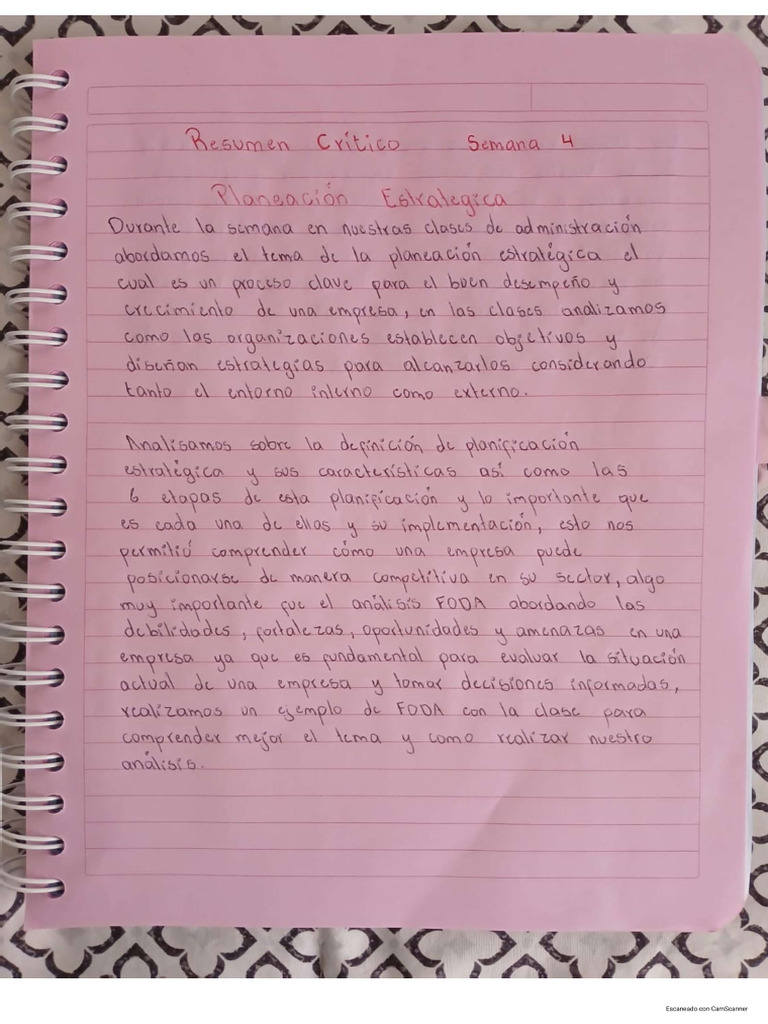 Resumen Crítico Semana 4
Planeación Estrategica
Durante la semana en nuestras clases de administración
abordamos el tema de la planeación estratégica el
cual es un proceso clave para el buen desempeño y
crecimiento de una empresa, en las clases analizamos
como las organizaciones establecen objetivos y
diseñan estrategias para alcanzarlos considerando
tanto el entorno interno como externo.
Analisamos sobre la definición de planificación
estratégica y sus características así como las
6 etapas de esta planificación y lo importante que
es cada una de ellas y su implementación, esto nos
permitió comprender cómo una empresa puede
posicionarse de manera competitiva en su sector, algo
muy importante fue el análisis FODA abordando las
debilidades, fortalezas, oportunidades y amenazas en una
empresa ya que es fundamental para evaluar la situación
actual de una empresa y tomar decisiones informadas,
realizamos un ejemplo de FODA con la clase para
comprender mejor el tema y como realizar nuestro
análisis.
Escaneado con CamScanner